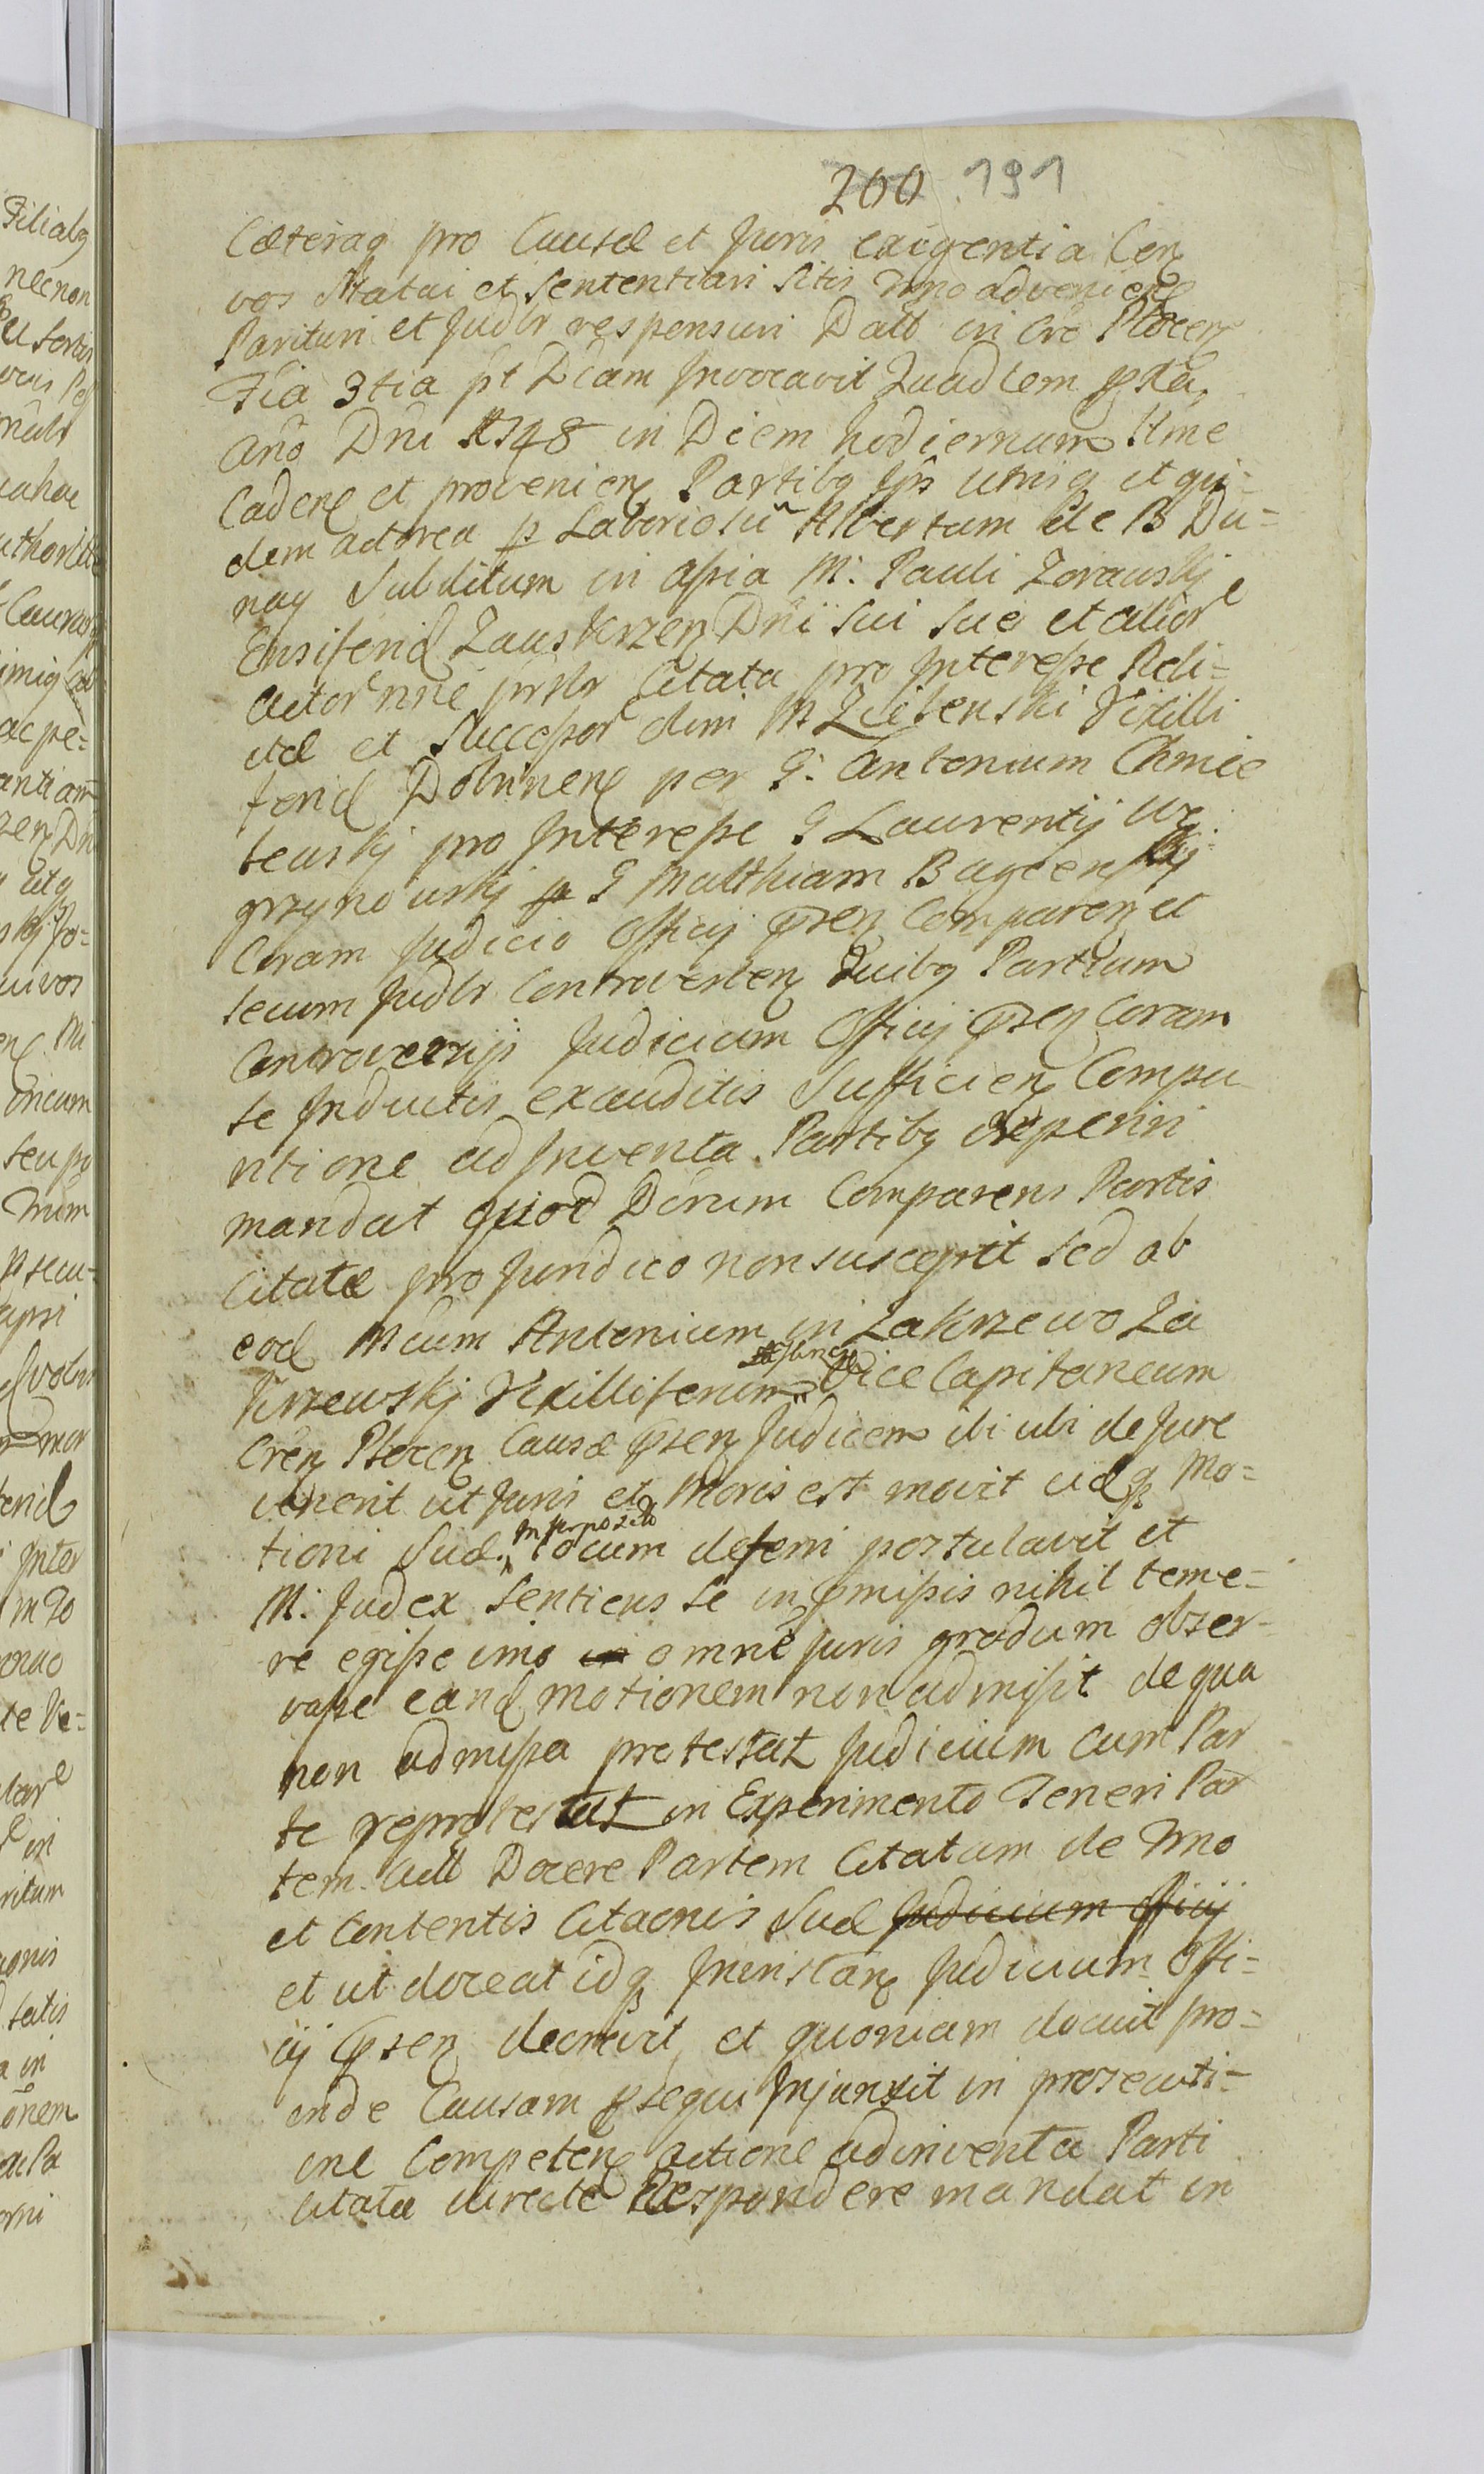 200 191
Cæteraq pro Causæ et Juris exigentia Cen
vos Statui et Sententiari Sitis Tmno adveniene
Parituri et Judlr responsuri Datt in Cro Plocen
Fia 3tia pt Dicam Invocavit Quadlem pxta
Ano Dni 1748 in Diem hodiernum Itme
Caden et provenien Partibq Ipis utrisq et qui=
dem actorea p Laboriosu Albertum de B Du=
nay Subditum in aspia M: Pauli Zorawskj
Ensiferid Zauskrzen Dni Sui Suo et alior
actor nne prslr Citata pro Interesse Reli=
ctæ et Successor olim M Zielenski Vixilli
ferid Dobrinen per G: Antonium Chmie
lewskj pro Interesse G Laurentij We
grzynowskj p G Matthiam Bagienskj
Coram Judicio Officij psen Comparen et
secum Judlr Controverten Quibq Partium
Controversijs Judicium Officij psen Coram
se Inductis exauditis Sufficien Compa
ritione adinventa Partibq experiri
mandat quod Dcrum Comparens Partis
Citatæ pro Juridico non suscepit sed ab
eod Mcum Antonium in Zakrzewo Za
Krzewskj Vexilliferum Vice Capitaneum
Cren Plocen Causæ psen Judicem ibi ubi de Jure
venerit ut Juris et Moris est movit idq Mo=
tioni Suæ In proposito locum deferri postulavit et
M: Judex Sentiens se in pmissis nihil teme=
re egisse imo omne juris gradum obser=
vasse eand motionem non admisit de qua
non admissa protestat Judicium cum Par
te reprotestat in Experimento Teneri Par
tem Act Docere Partem Citatam de Tmno
et Contentis Citaonis Suæ Judicium Officij
et ut doceat idq Ininstan Judicium Offi=
cij psen decrevit et quoniam docuit pro=
inde Causam psequi Injunxit in prosecuti=
one Competen actione adinventa Parti
Citatæ directe Respondere mandat in